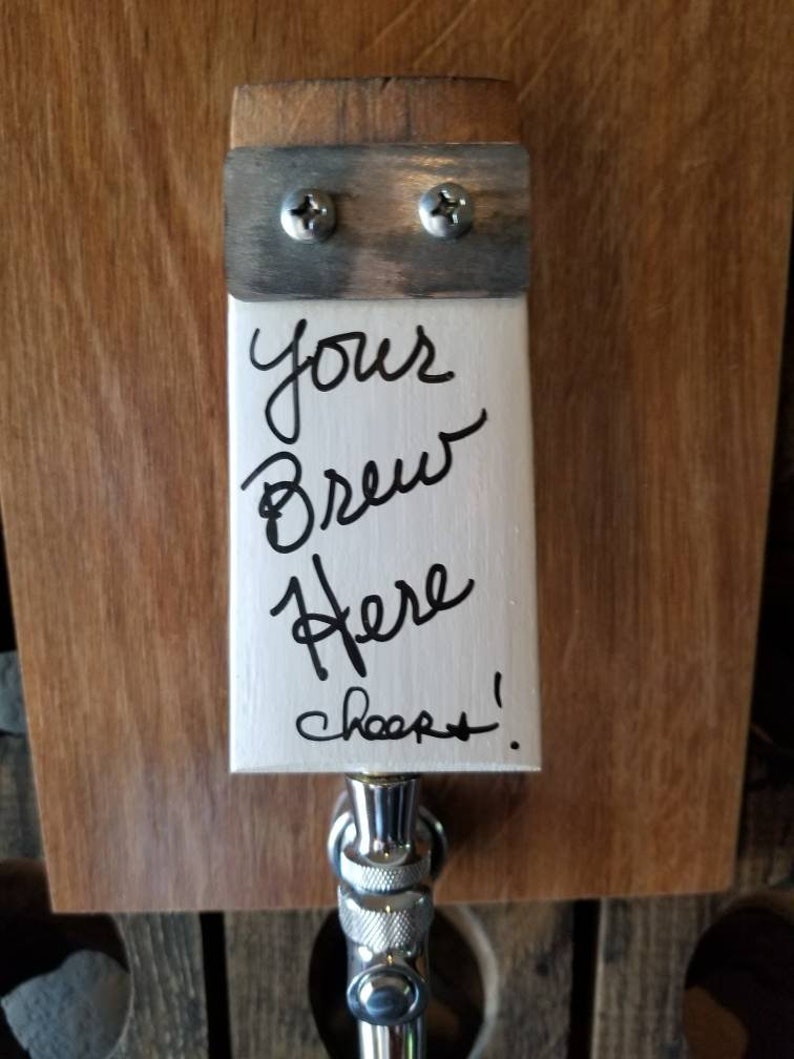 Your
Brew
Here
cheers!